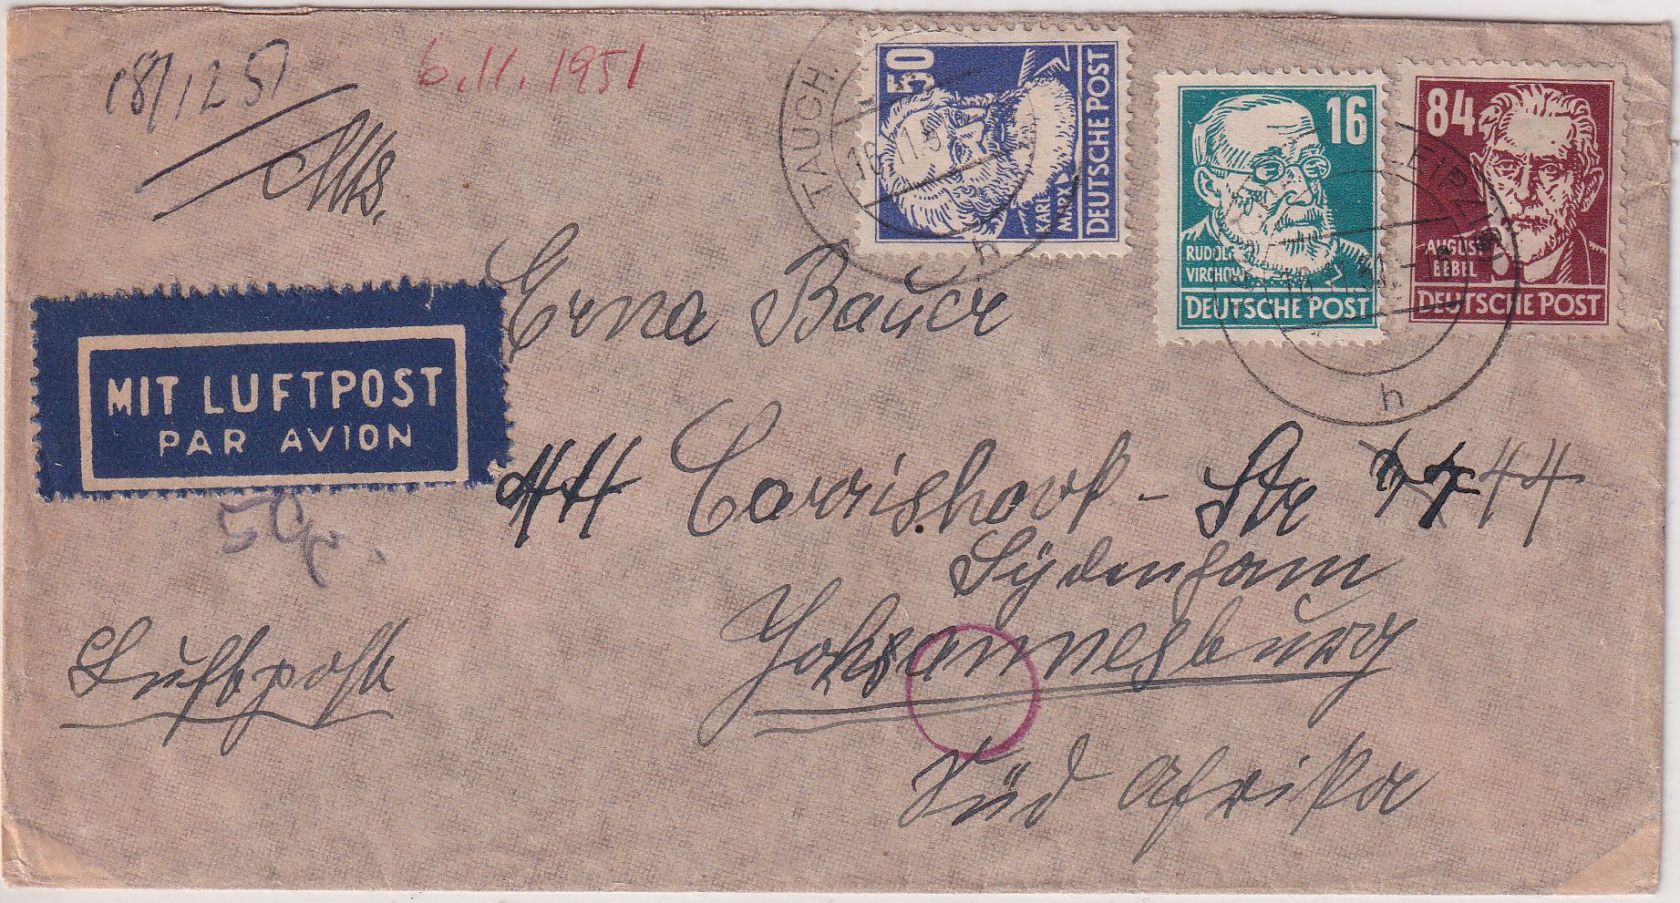 18/12 51.
6.11.1951
50
KARL
MARX
DEUTSCHE POST
TAUCH
h
16
RUDOLF
VIRCHOW
DEUTSCHE POST
84
AUGUST
BEBEL
DEUTSCHE POST
LEIPZIG
h
Erna Bauer
MIT LUFTPOST
PAR AVION
44 Corrishork - Str 44 44
Sydenham
Johannesburg
Luftpost
Süd Afrika